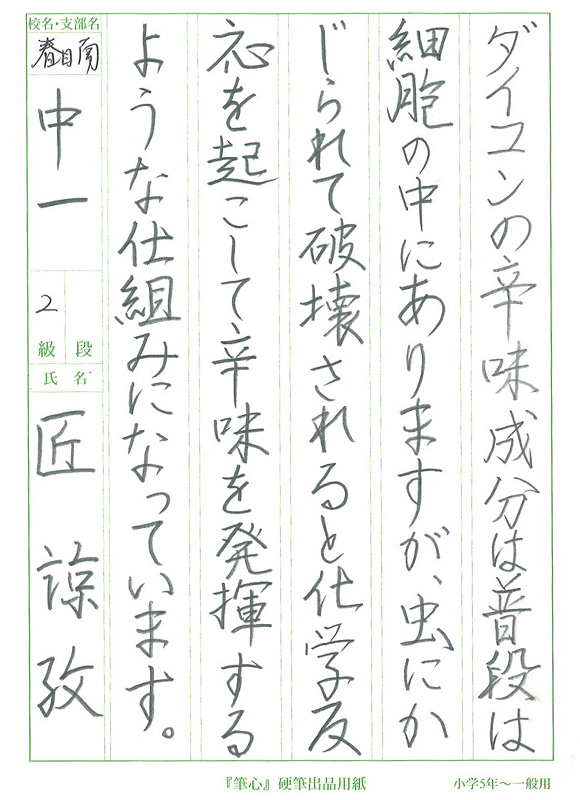 ダイコンの辛味成分は普段は
細胞の中にありますが、虫にか
じられて破壊されると化学反
応を起こして辛味を発揮する
ような仕組みになっています。
校名・支部名
春日南
中一
2
級 段
氏名
匠 諒孜
『筆心』硬筆出品用紙
小学5年～一般用